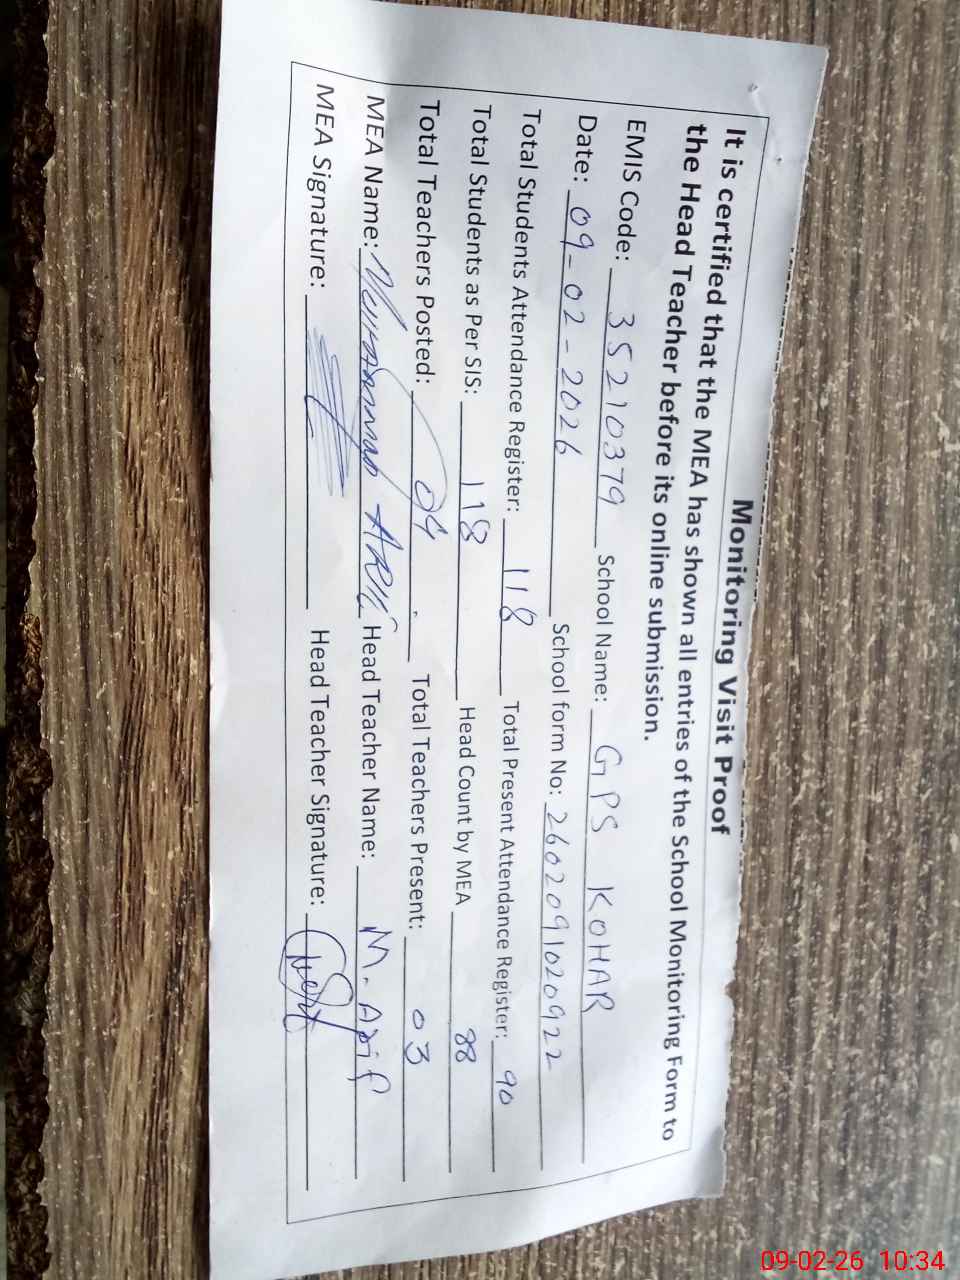 Monitoring Visit Proof
It is certified that the MEA has shown all entries of the School Monitoring Form to
the Head Teacher before its online submission.
EMIS Code: 35210379 School Name: GPS KOHAR
Date: 09-02-2026 School form No: 2602091020922
Total Students Attendance Register: 118 Total Present Attendance Register: 90
Total Students as Per SIS: 118 Head Count by MEA 88
Total Teachers Posted: 04 Total Teachers Present: 03
MEA Name: Muhammad Head Teacher Name: M. Arif
MEA Signature: Head Teacher Signature:
09-02-26 10:34